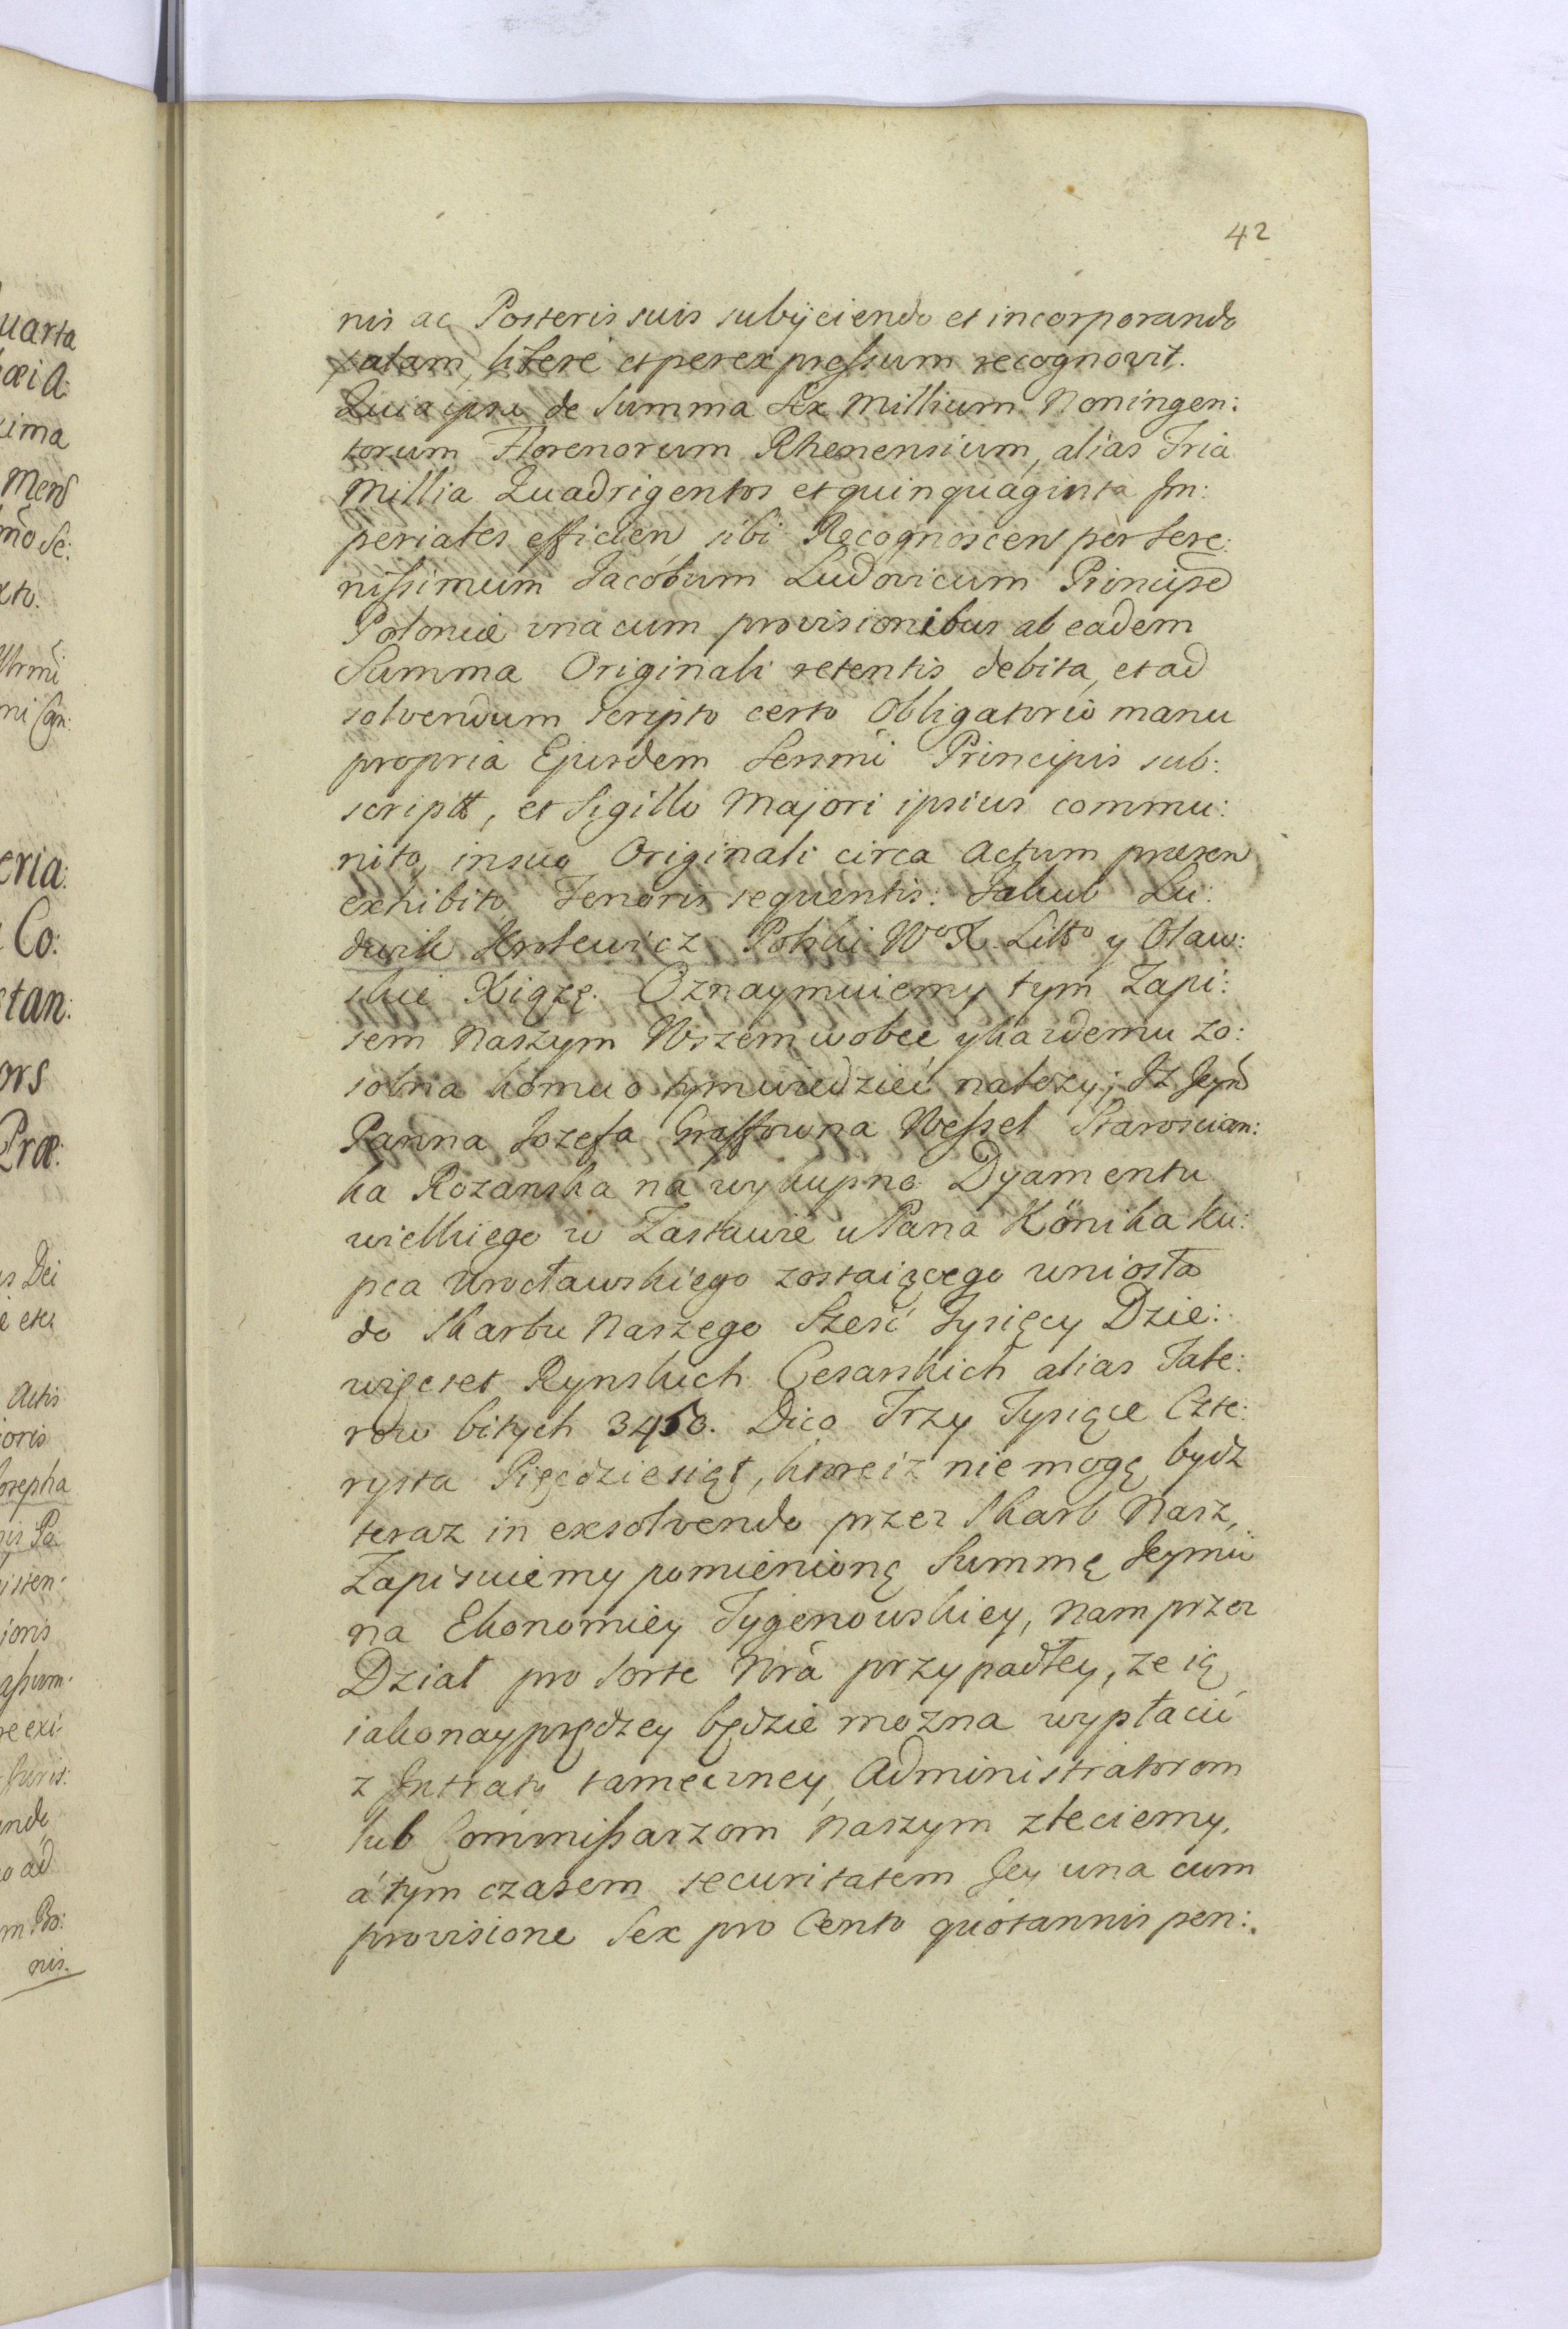 42
nis ac Posteris suis subijciendo et incorporando
palam, libere et per expressum recognovit.
Quia ipsa de Summa Sex Millium Noningen:
torum Florenorum Rhenensium, alias Tria
Millia Quadrigentos et quinquaginta Im:
periales efficien, sibi Recognoscen per Sere:
nissimum Jacobum Ludovicum Principe
Poloniæ una cum provisionibus ab eadem
Summa Originali retentis debita, et ad
solvendum scripto certo Obligatorio manu
propria Ejusdem Sermi Principis sub:
script, et Sigillo Majori ipsius commu:
nito, in suo Originali circa Actum præsen
exhibito, Tenoris sequentis: Jakub Lu:
dwik Krolewicz Polski W°X. Litt° y Oław:
skie Xiązę. Oznaymuiemy tym Zapi:
sem Naszym Wszem wobec y kazdemu zo:
sobna komu o tym wiedzieć nalezy; Iz Jeym
Panna Jozefa Graffowna Wessel Starościan:
ka Rozanska na wykupno Dyamentu
wielkiego w Zastawie u Pana Könika ku:
pca Wrocławskiego zostaiącego uniosła
do Skarbu Naszego Sześć Tysięcy Dzie:
więcset Rynskich Cesarskich alias Tale:
row bitych 3450. Dico Trzy Tysiące Czte:
rysta Pięćdziesiąt, ktore iż nie mogą bydz
teraz in exsolvendo przez Skarb Nasz,
Zapisuiemy pomienioną Summę Jeymci
na Ekonomiey Tygenowskiey, Nam przez
Dział pro Sorte Nra przypadłey, ze ią
iako nayprędzey będzie mozna wypłacić
z Intraty tameczney Administratorom
lub Commissarzom Naszym zleciemy,
á tym czasem securitatem Jey una cum
provisione Sex pro Cento quotannis pen:
uarta
ima
Mens
Co:
stan:
ors
Præ:
Actis
ioris
osepha
ioris
nis.